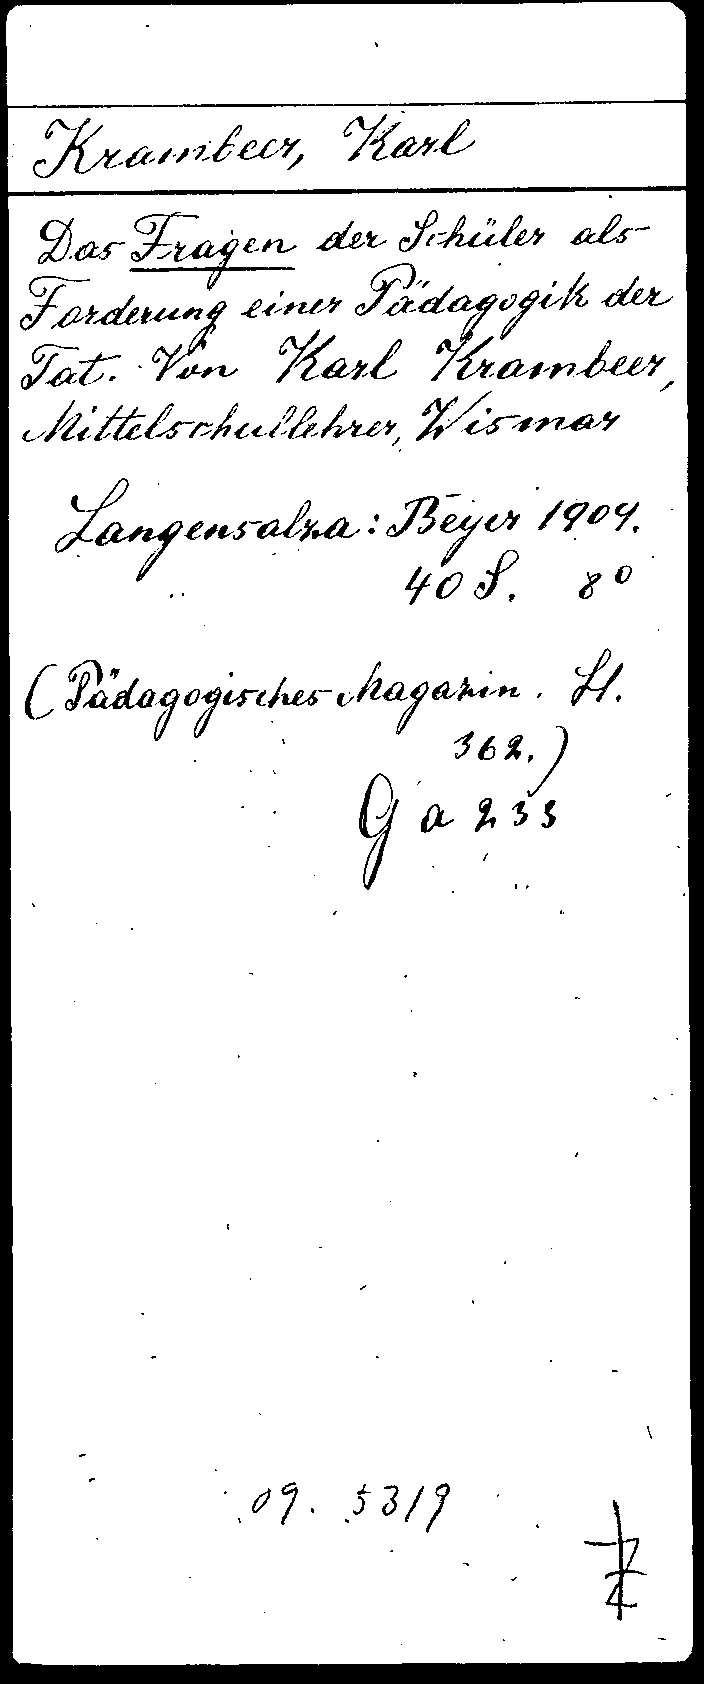 Krambeer, Karl
Das Fragen der Schüler als
Forderung einer Pädagogik der
Tat. Von Karl Krambeer,
Mittelschullehrer, Wismar
Langensalza: Beyer 1909.
40 S. 8°
(Pädagogisches Magazin. H.
362.)
Ga 233
09. 5319